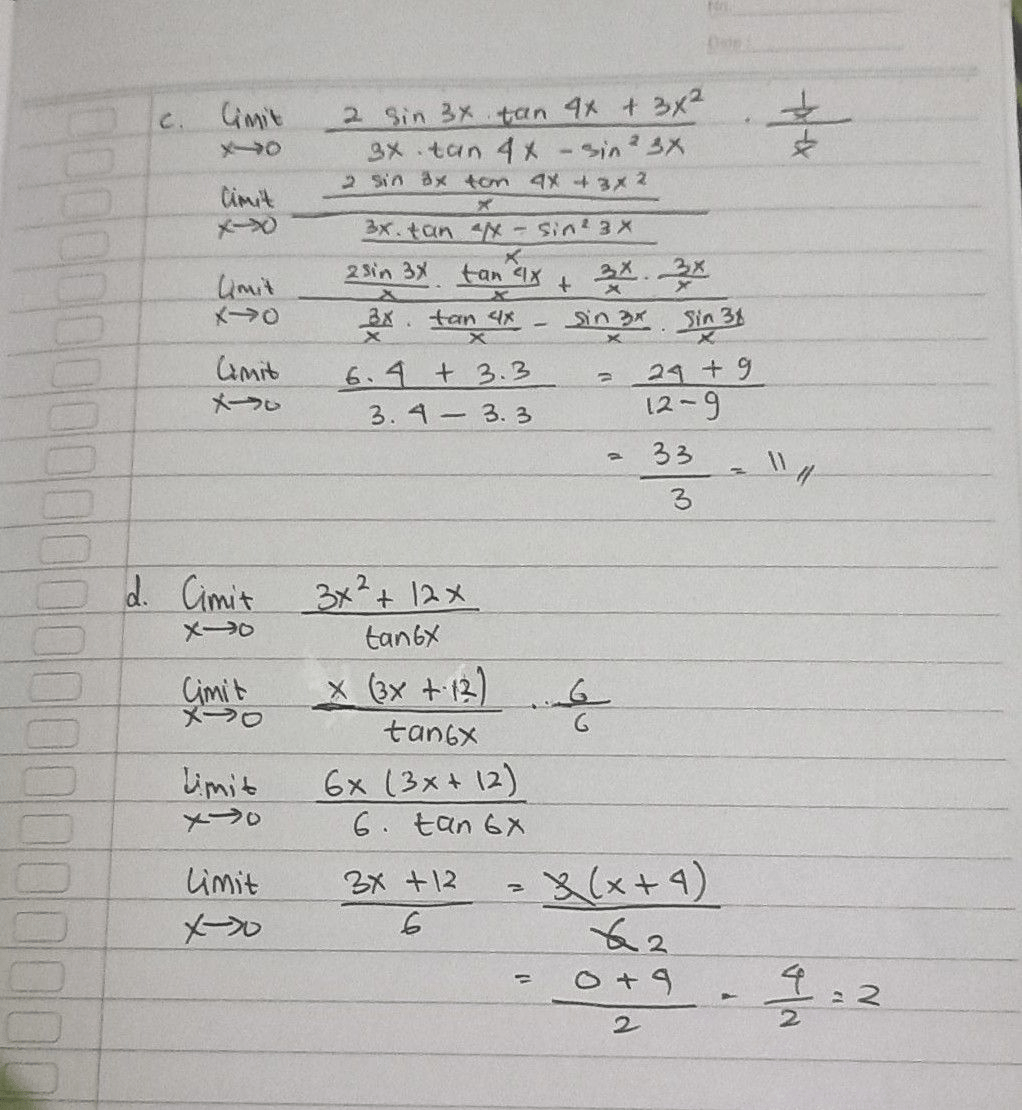 No.
Date:
c. Limit x→0 (2 sin 3x . tan 4x + 3x²) / (3x . tan 4x - sin² 3x) . (1/x) / (1/x)
Limit x→0 ((2 sin 3x tan 4x + 3x²) / x) / ((3x . tan 4x - sin² 3x) / x)
Limit x→0 (2 sin 3x / x . tan 4x / x + 3x / x . 3x / x) / (3x / x . tan 4x / x - sin 3x / x . sin 3x / x)
Limit x→0 (6.4 + 3.3) / (3.4 - 3.3) = (24 + 9) / (12 - 9)
= 33 / 3 = 11 //
d. Limit x→0 (3x² + 12x) / tan 6x
Limit x→0 x (3x + 12) / tan 6x . 6 / 6
Limit x→0 6x (3x + 12) / 6 . tan 6x
Limit x→0 (3x + 12) / 6 = 3 (x + 4) / 6 2
= (0 + 4) / 2 = 4 / 2 = 2